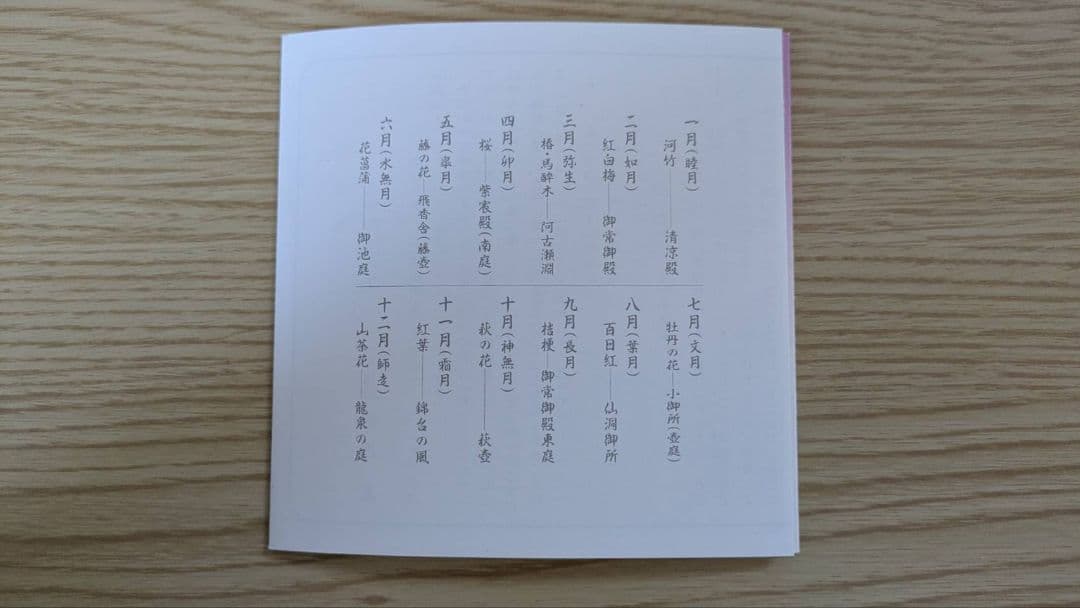 一月(睦月)
河竹――清涼殿
二月(如月)
紅白梅――御常御殿
三月(弥生)
椿・馬酔木――阿古瀬淵
四月(卯月)
桜――紫宸殿(南庭)
五月(皐月)
藤の花――飛香舎(藤壺)
六月(水無月)
花菖蒲――御池庭
七月(文月)
牡丹の花――小御所(壺庭)
八月(葉月)
百日紅――仙洞御所
九月(長月)
桔梗――御常御殿東庭
十月(神無月)
萩の花――萩壺
十一月(霜月)
紅葉――錦台の風
十二月(師走)
山茶花――龍泉の庭